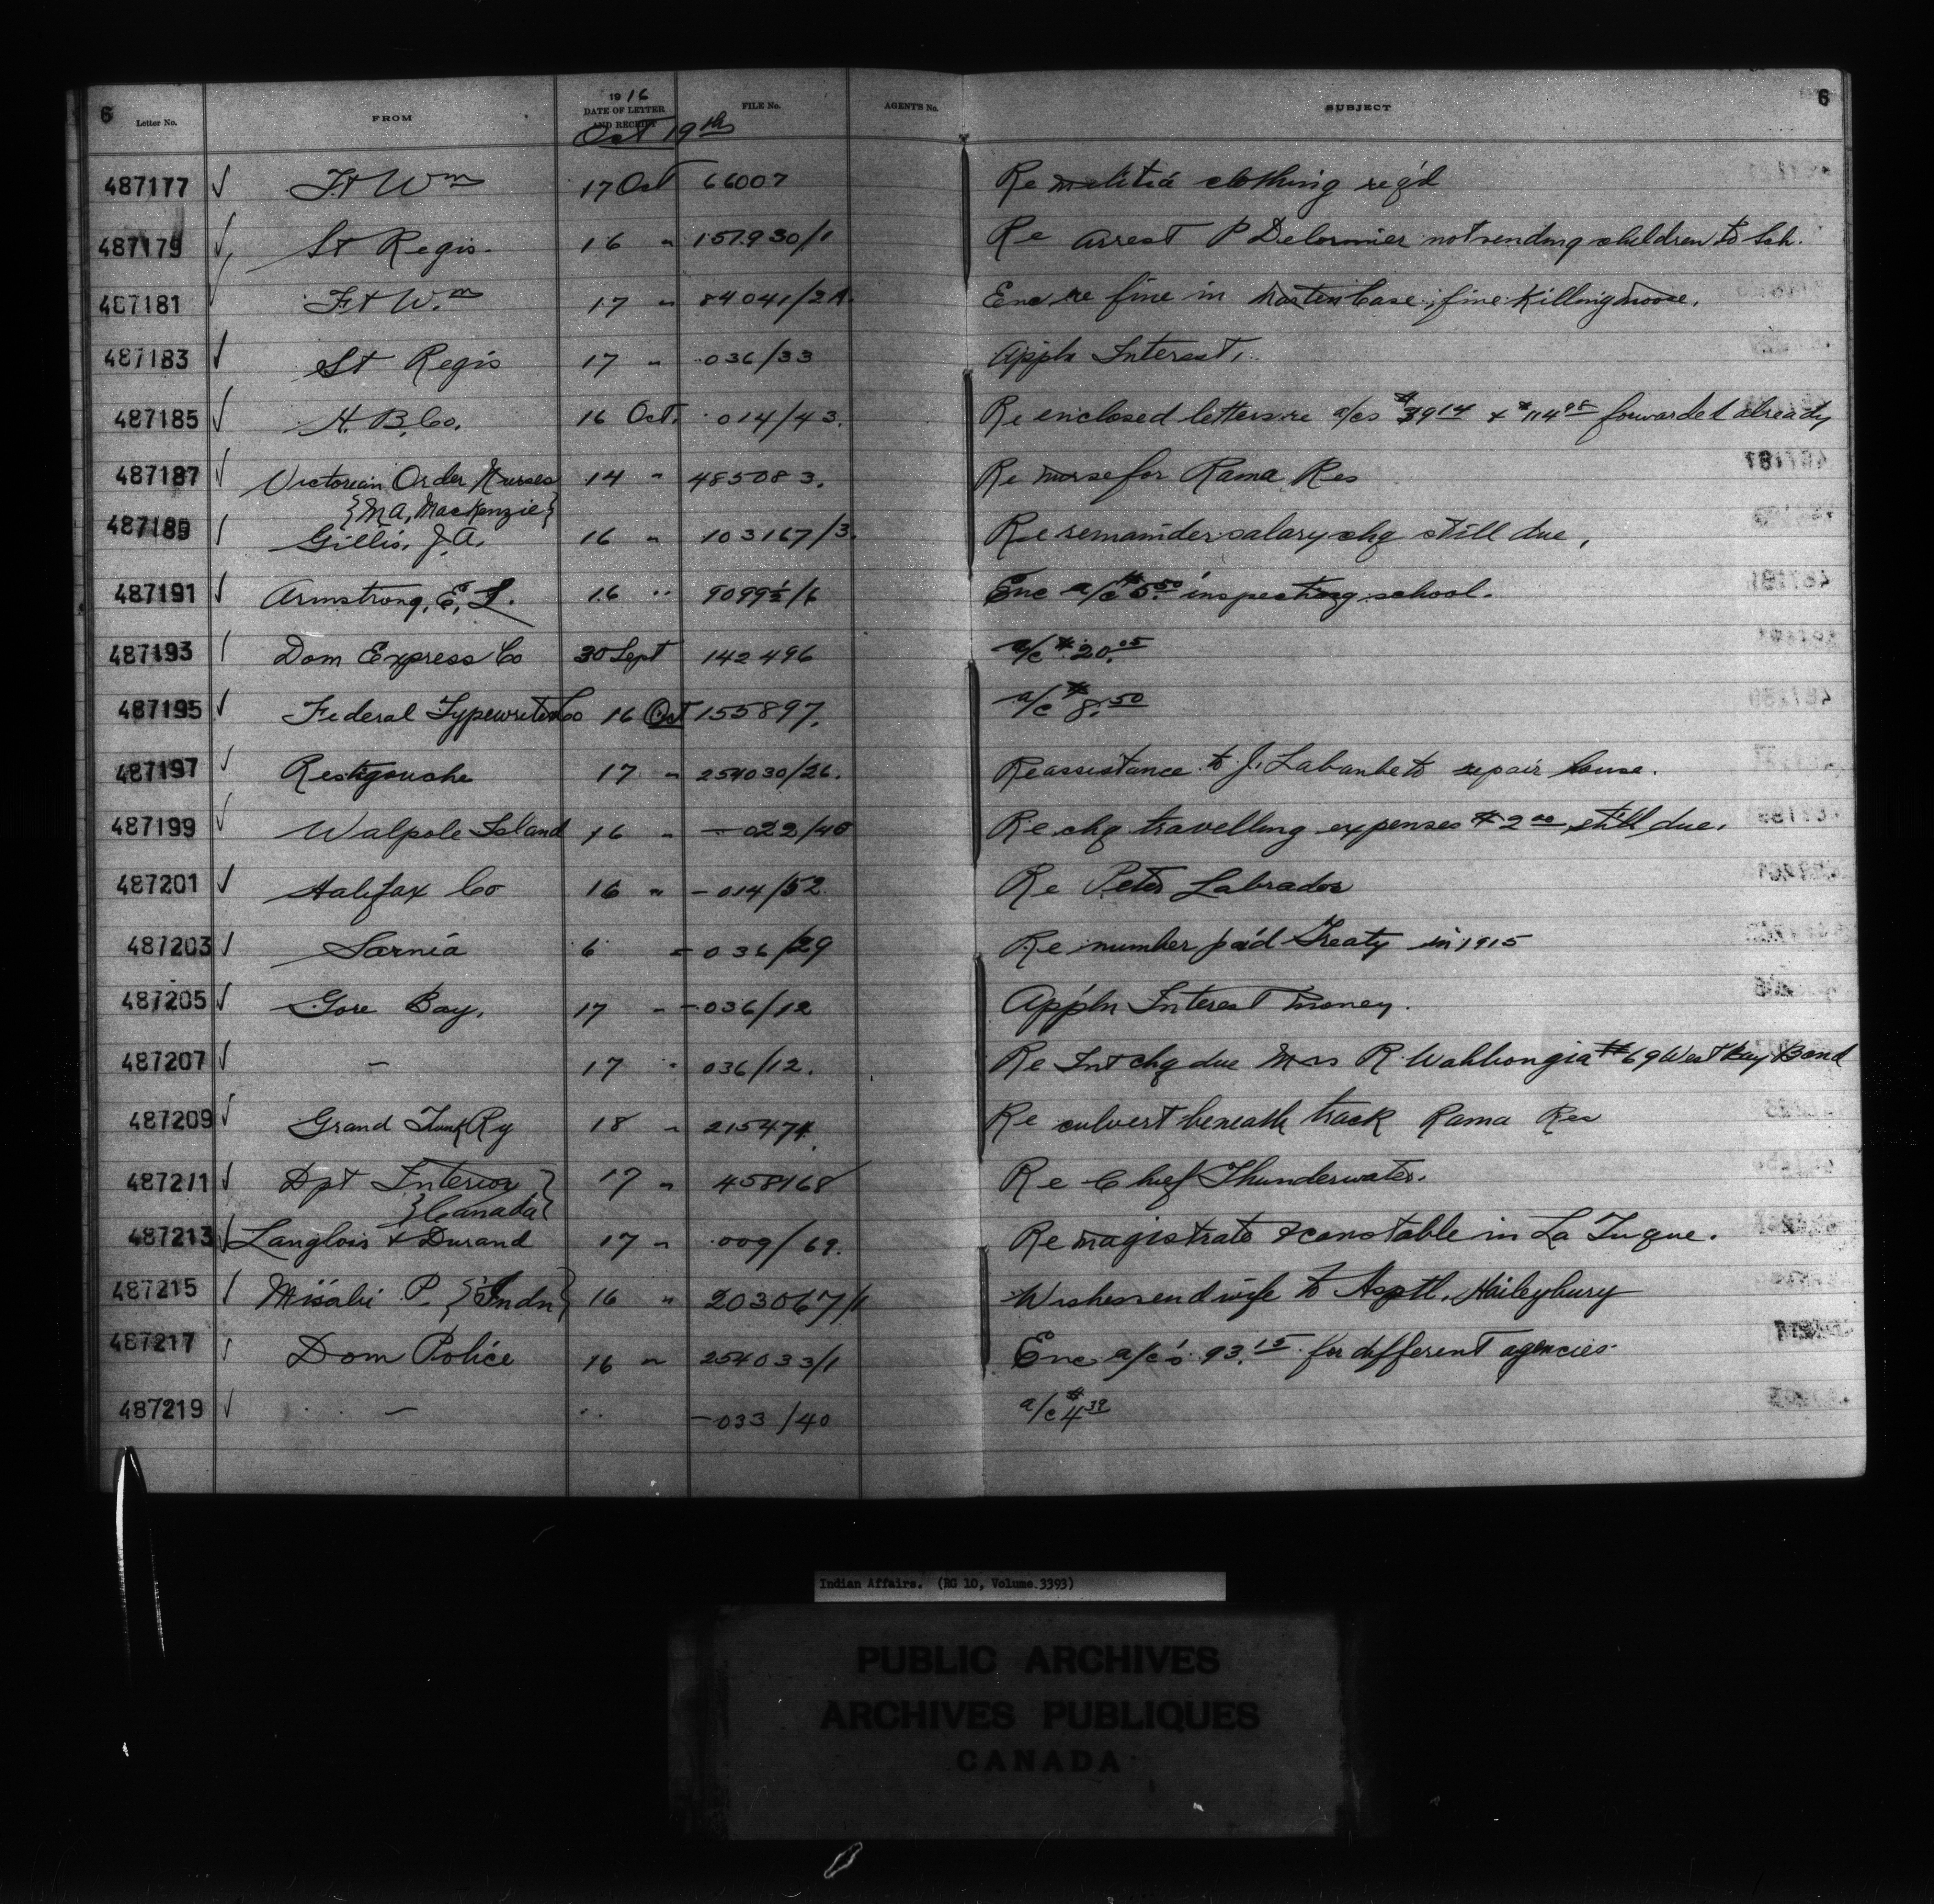 6 Letter No. FROM 1916 DATE OF LETTER AND RECEIPT FILE No. AGENT'S No. SUBJECT 6
Oct 19th
487177 Ft Wm 17 Oct 66007 Re militia clothing reqd
487179 St Regis. 16 " 157930/1 Re arrest P Delormier not sending children to Sch.
487181 Ft Wm 17 " 84041/2A Enc re fine in Case, fine Killing moose.
487183 St Regis 17 " 036/33 Appln Interest,
487185 H. B. Co. 16 Oct. 014/43. Re enclosed letters re a/cs $39 14 & $114 98 forwarded already
487187 Victorian Order Nurses 14 " 485083. Re nurse for Rama Res
{M A, MacKenzie}
487189 Gillis, J. A. 16 " 103167/3. Re remainder salary chq still due,
487191 Armstrong, E, L. 16 " 9099½/6 Enc a/c $5.50 inspecting school.
487193 Dom Express Co 30 Sept 142496 a/c $20.05
487195 Federal Typewriter Co 16 Oct 155897. a/c $8.50
487197 Restigouche 17 " 254030/26. Re assistance to J. to repair house.
487199 Walpole Island 16 " -022/40 Re chq travelling expenses $2 00 still due.
487201 Halifax Co 16 " -014/52. Re Peter Labrador
487203 Sarnia 6 " -036/29 Re number paid Treaty in 1915
487205 Gore Bay, 17 " -036/12 Appln Interest money.
487207 - 17 " 036/12. Re Int chq due Mrs R. Wahbongia #69 West Bay Band
487209 Grand Trunk Ry 18 " 215474. Re culvert beneath track Rama Res
487211 Dpt Interior } 17 " 458168 Re Chief Thunderwater.
{Canada}
487213 Langlois & Durand 17 " 009/69. Re magistrate & constable in La Tuque.
487215 Misabi P. {Indn} 16 " 203067/1 Wishes send wife to Hsptl, Haileybury
487217 Dom Police 16 " 254033/1 Enc a/c's 93.15 for different agencies
487219 - " -033/40 a/c $4 39
Indian Affairs. (RG 10, Volume.3393)
PUBLIC ARCHIVES
ARCHIVES PUBLIQUES
CANADA